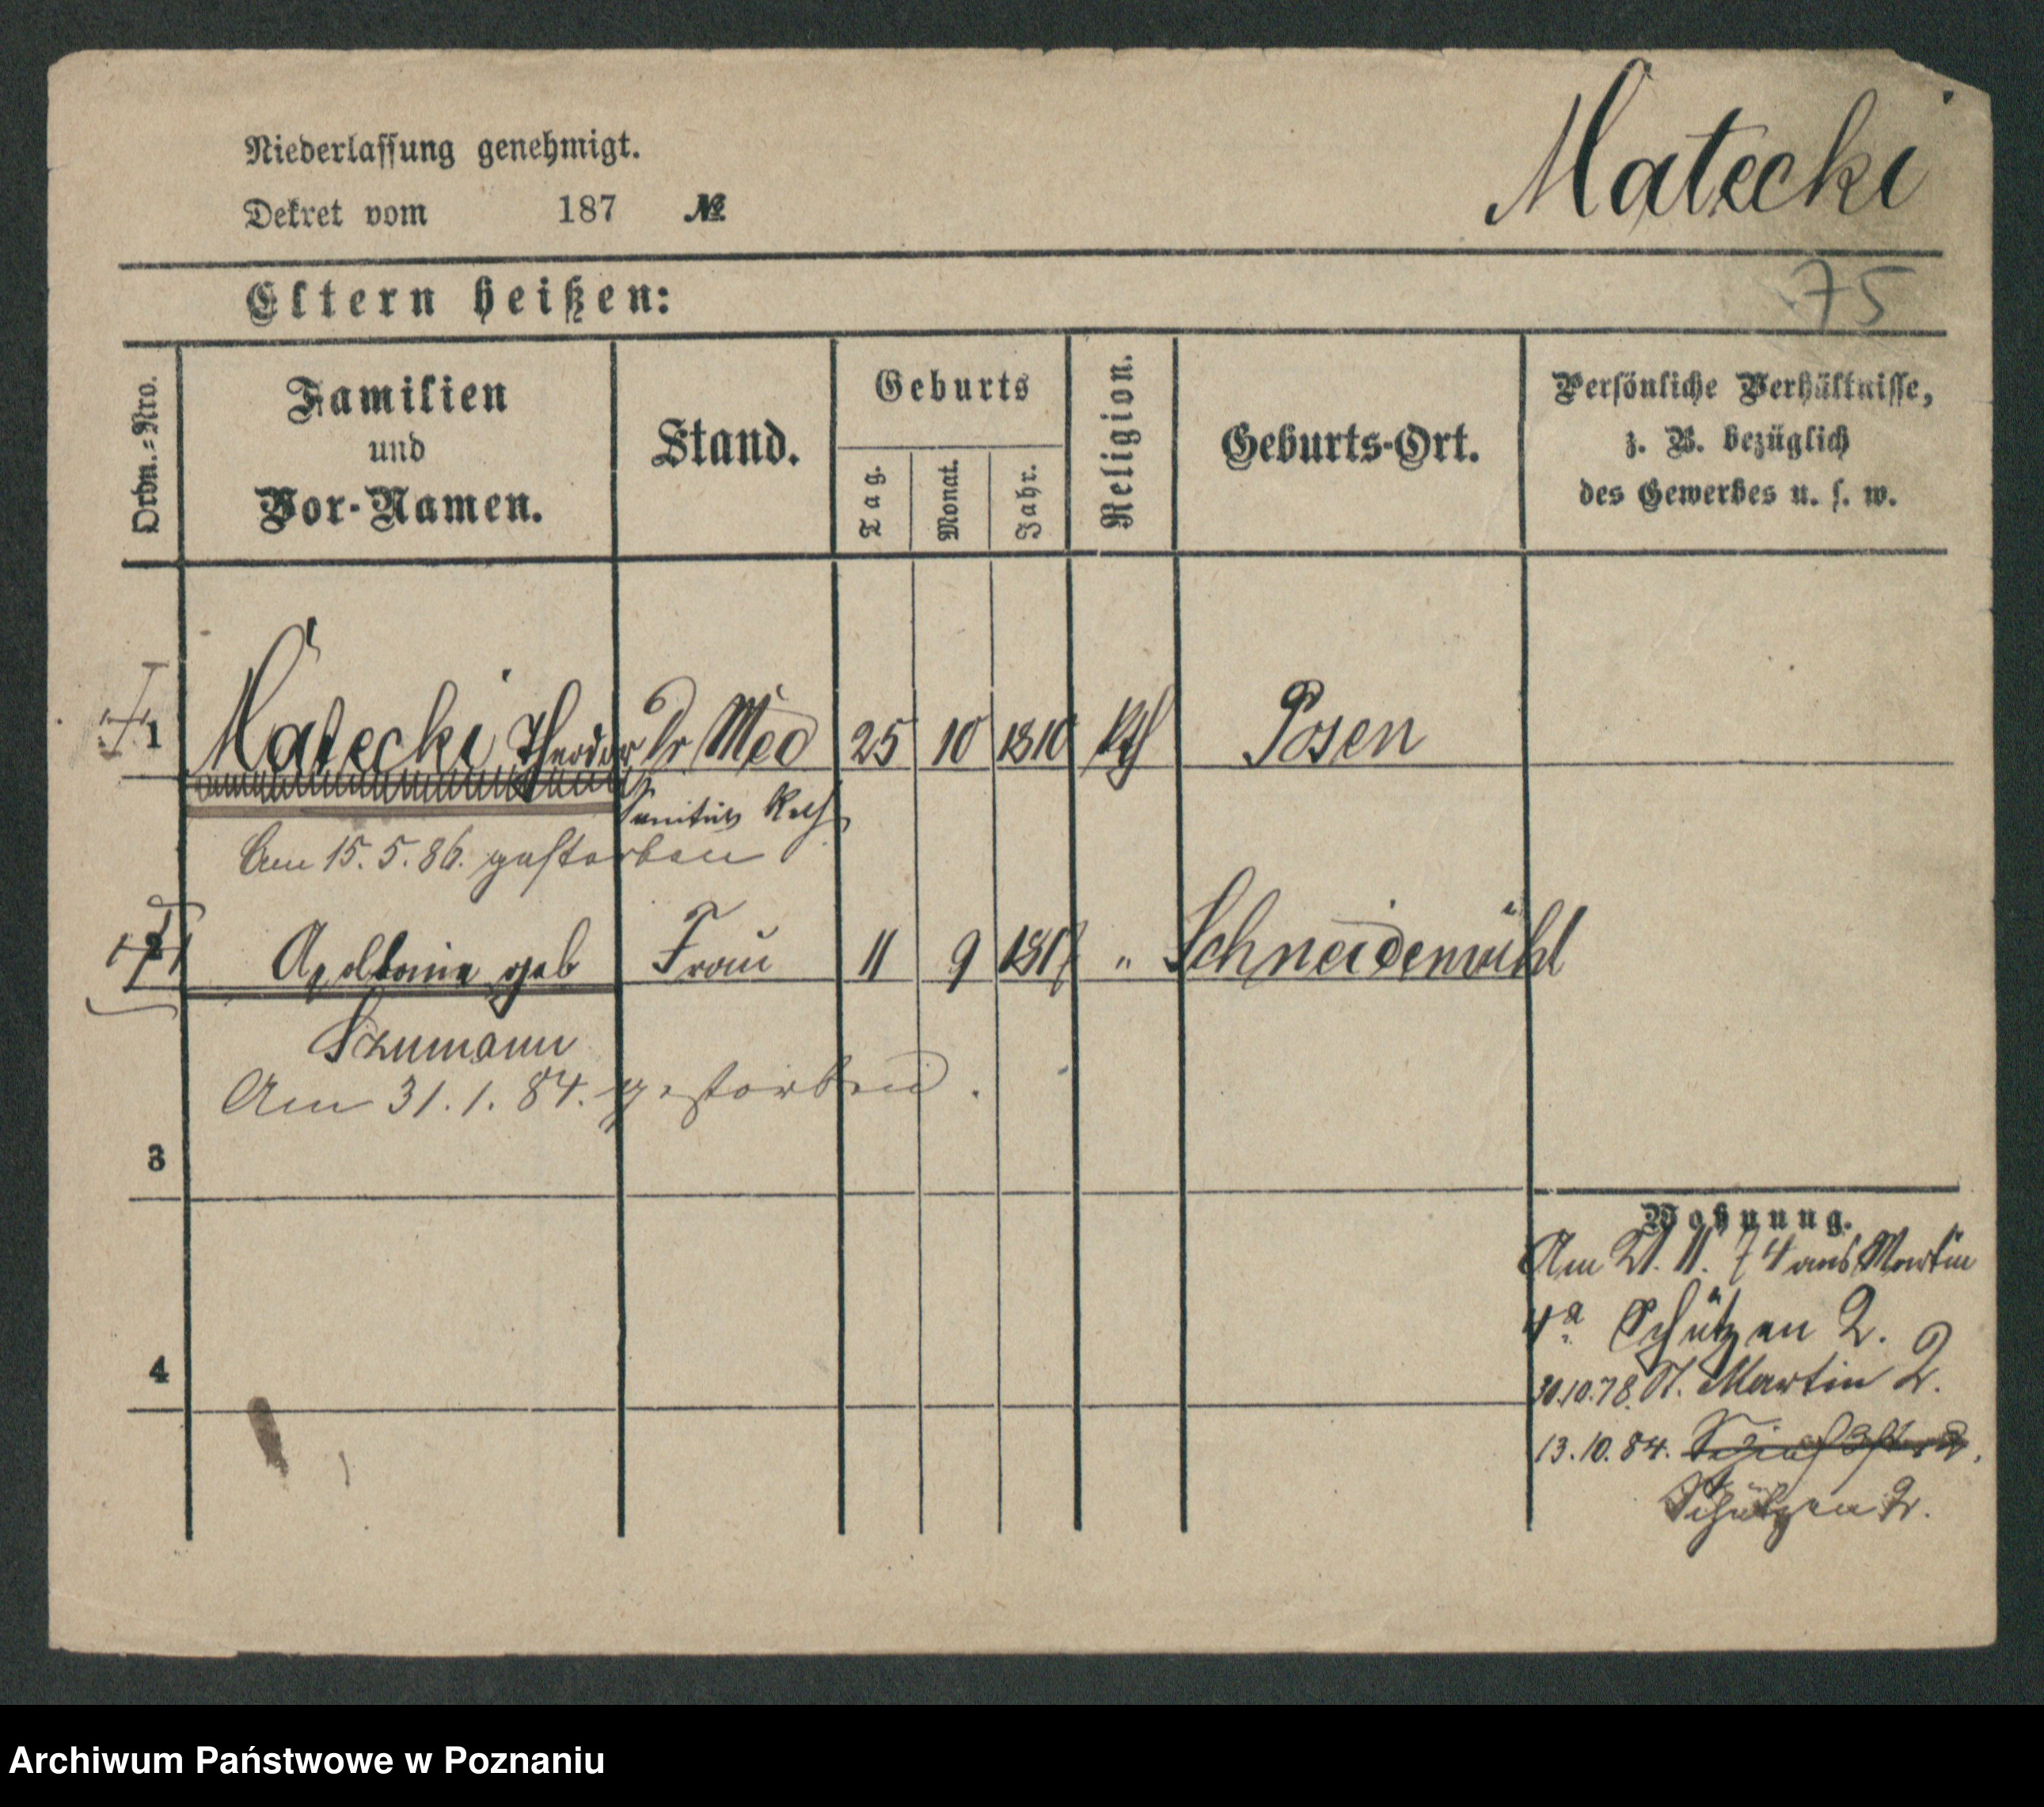 Niederlassung genehmigt.
Matecki
Dekret vom 187 №
Eltern heißen:
75
Ordn.-Nro.
Familien
und
Vor-Namen.
Stand.
Geburts
Tag.
Monat.
Jahr.
Religion.
Geburts-Ort.
Persönliche Verhältnisse,
z. B. bezüglich
des Gewerbes u. s. w.
1 Matecki Theodor Dr Med 25 10 1810 Kth Posen
Sanitäts Rath
Am 15. 5. 86. gestorben
2 Apollonia geb Frau 11 9 1817 " Schneidemühl
Szumann
Am 31. 1. 84. gestorben.
3
Wohnung.
Am 21. 11. 74 aus Martin
4a Schützen 2.
4
30.10.78. St. Martin 2.
13. 10. 84.
Schützen 2.
Archiwum Państwowe w Poznaniu